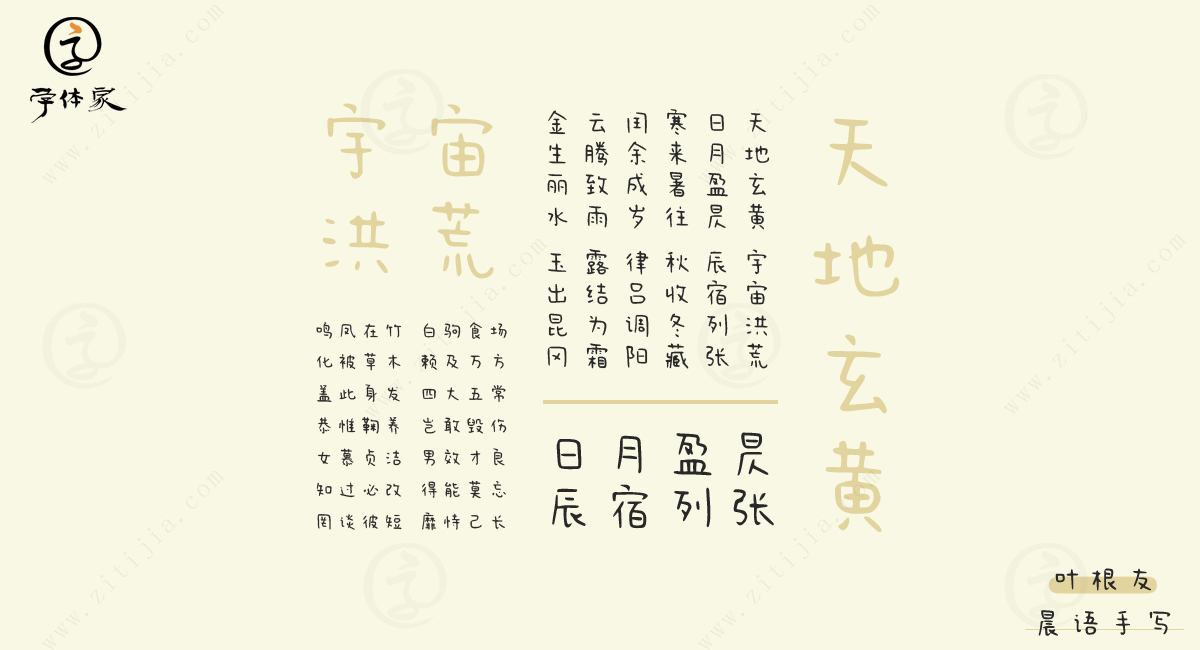 字体家
宇宙
洪荒
天地玄黄
天地玄黄 宇宙洪荒
日月盈昃 辰宿列张
寒来暑往 秋收冬藏
闰余成岁 律吕调阳
云腾致雨 露结为霜
金生丽水 玉出昆冈
鸣凤在竹 白驹食场
化被草木 赖及万方
盖此身发 四大五常
恭惟鞠养 岂敢毁伤
女慕贞洁 男效才良
知过必改 得能莫忘
罔谈彼短 靡恃己长
日月盈昃
辰宿列张
叶根友
晨语手写
www.zitijia.com